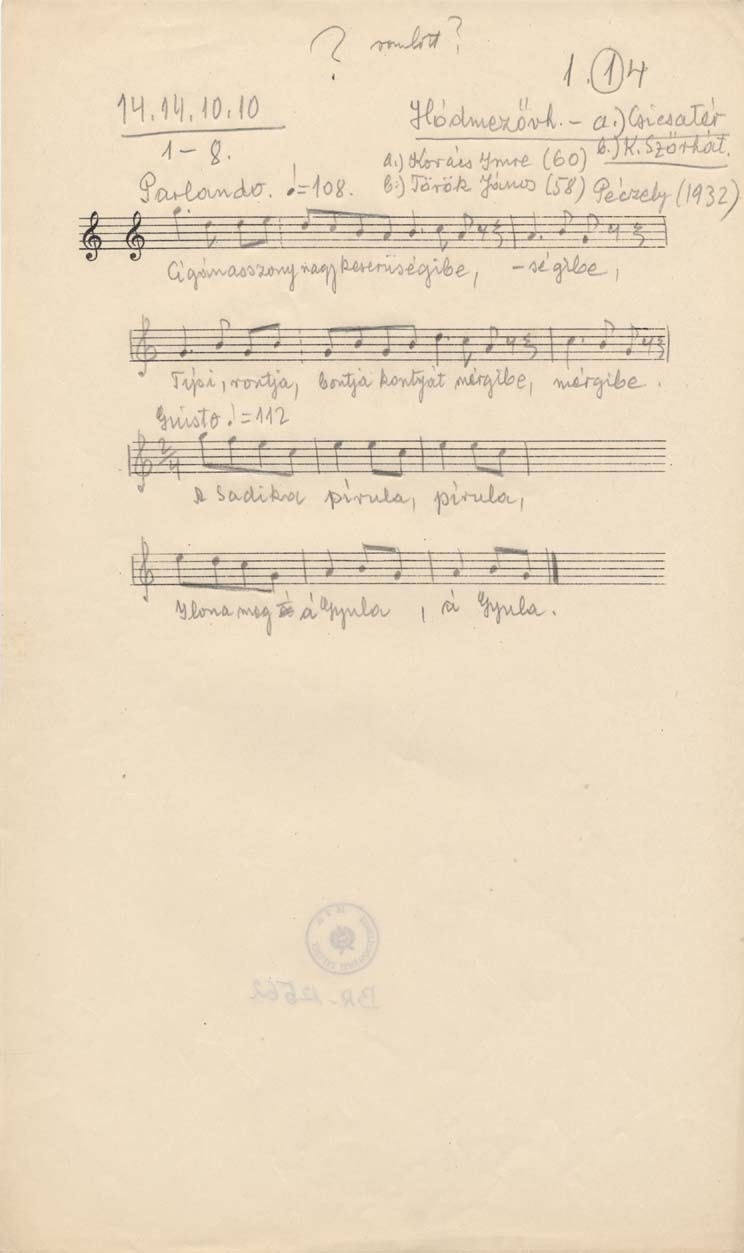 ? romlott?
1.14
14.14.10.10
Hódmezővh. - a.) Csicsatér
1-8.
b.) K. Szőrhát.
a.) Kovács Imre (60)
Parlando. ♩=108.
b.) Török János (58) Péczely (1932)
Cigánasszony nagy keserűségibe, -ségibe,
Tépi, rontja, bontja kontyát mérgibe, mérgibe.
Giusto ♩=112
2/4
A Sadika pírula, pírula,
Ilona meg á Gyula, á Gyula.
BR. 12562